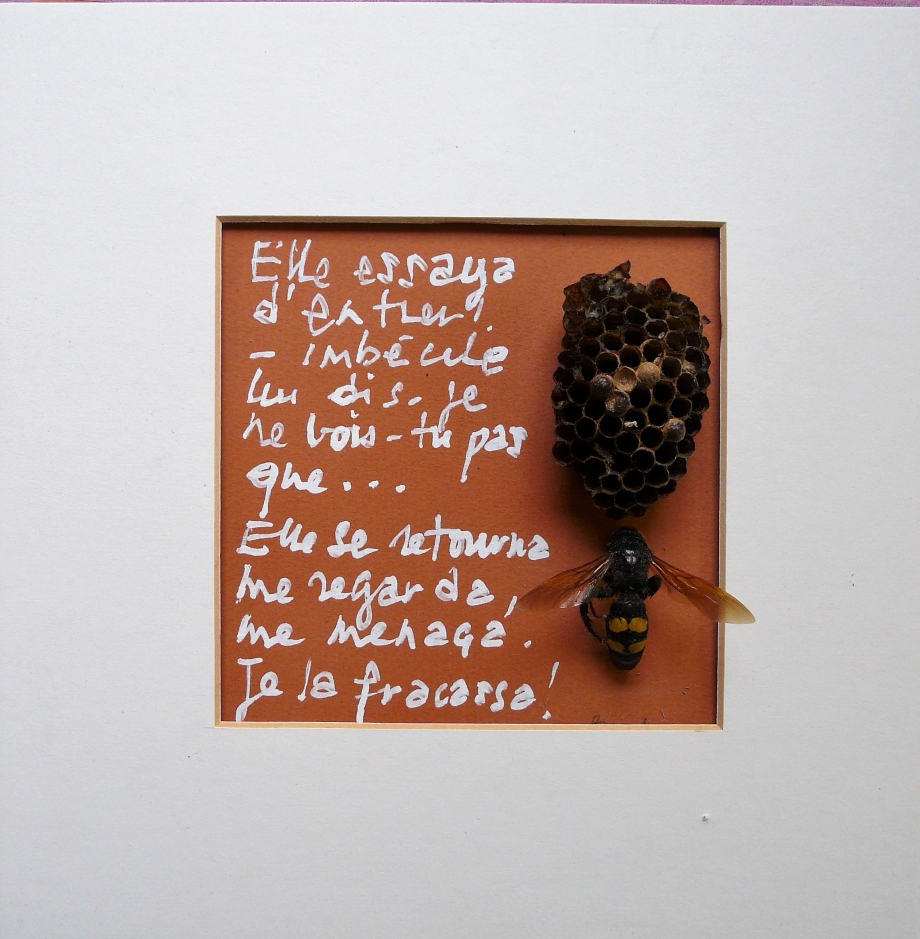 Elle essaya
d'entrer!
- imbécile
lui dis-je
ne vois-tu pas
que...
Elle se retourna
me regarda,
me menaça.
Je la fracassa!